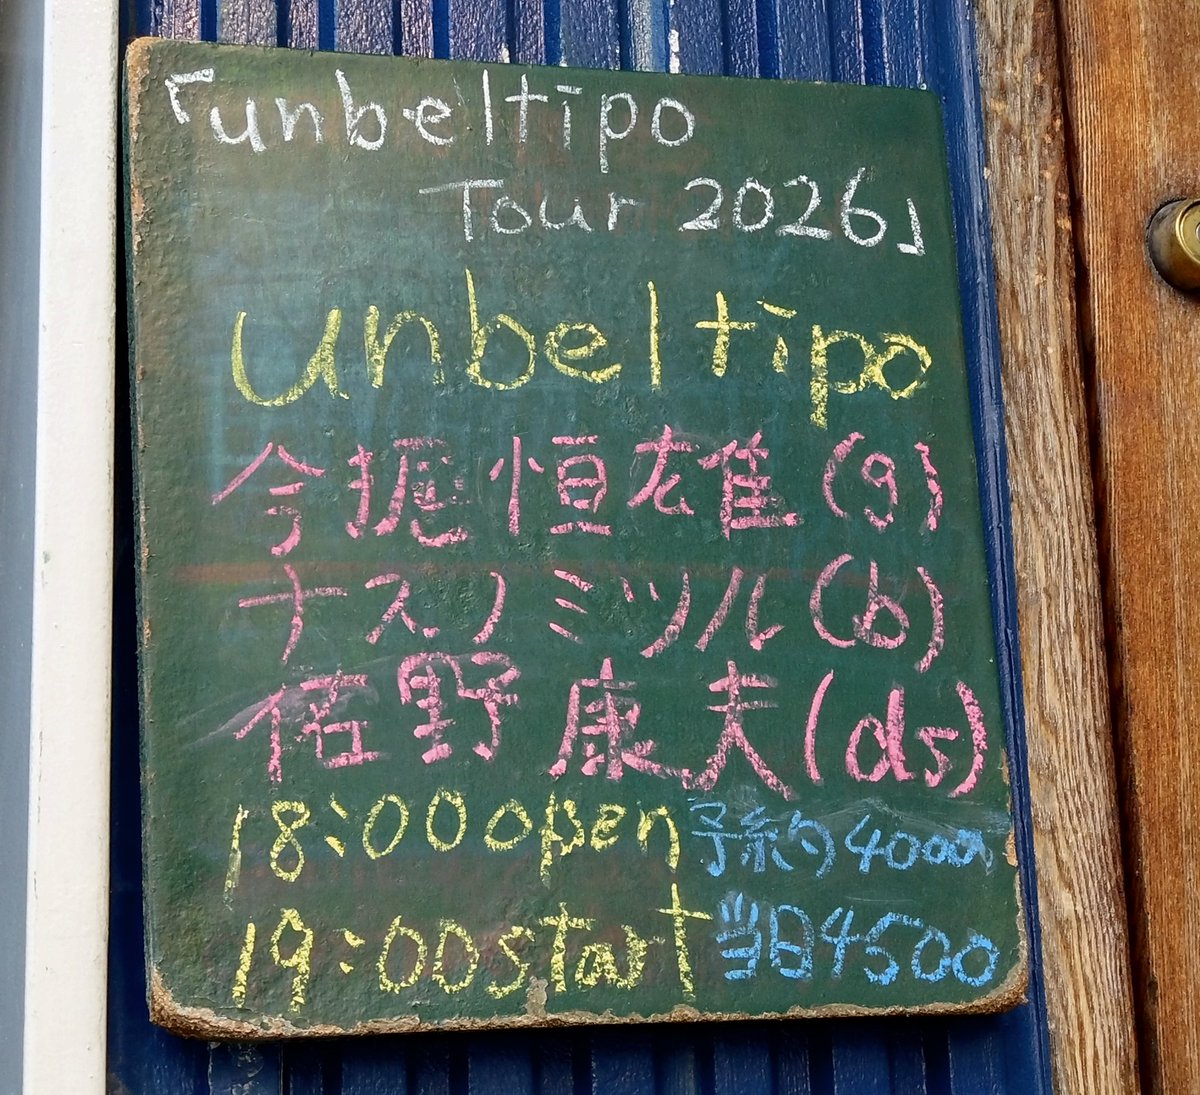 「unbeltipo
Tour 2026」
unbeltipo
今堀恒雄(g)
ナスノミツル(b)
佐野康夫(ds)
18:00open 予約4000
19:00start 当日4500